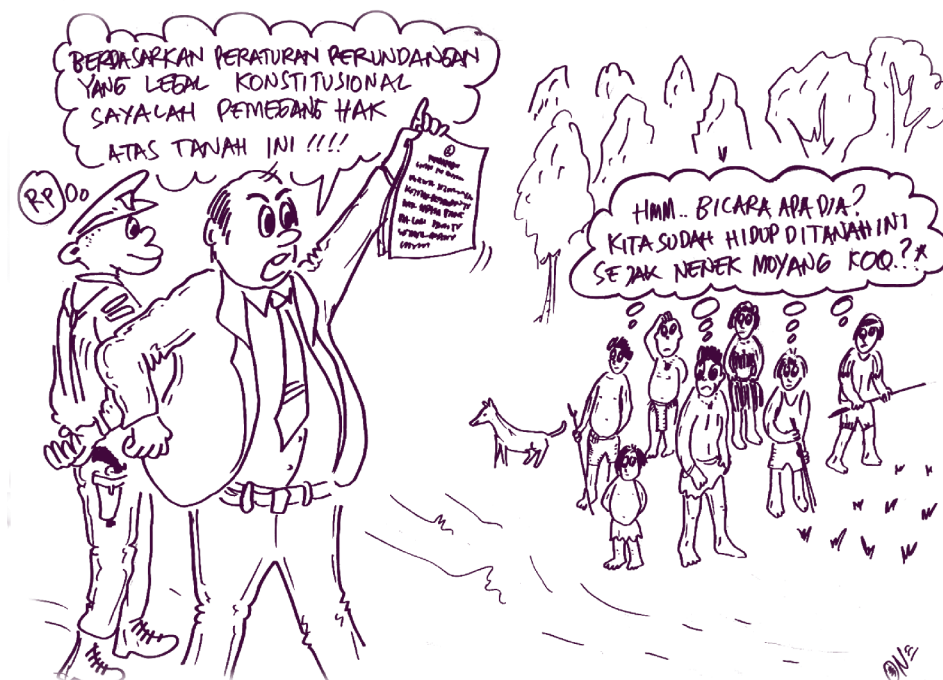 BERDASARKAN PERATURAN PERUNDANGAN
YANG LEGAL KONSTITUSIONAL
SAYALAH PEMEGANG HAK
ATAS TANAH INI !!!!
RP
HMM.. BICARA APA DIA?
KITA SUDAH HIDUP DITANAH INI
SEJAK NENEK MOYANG KOQ.?*